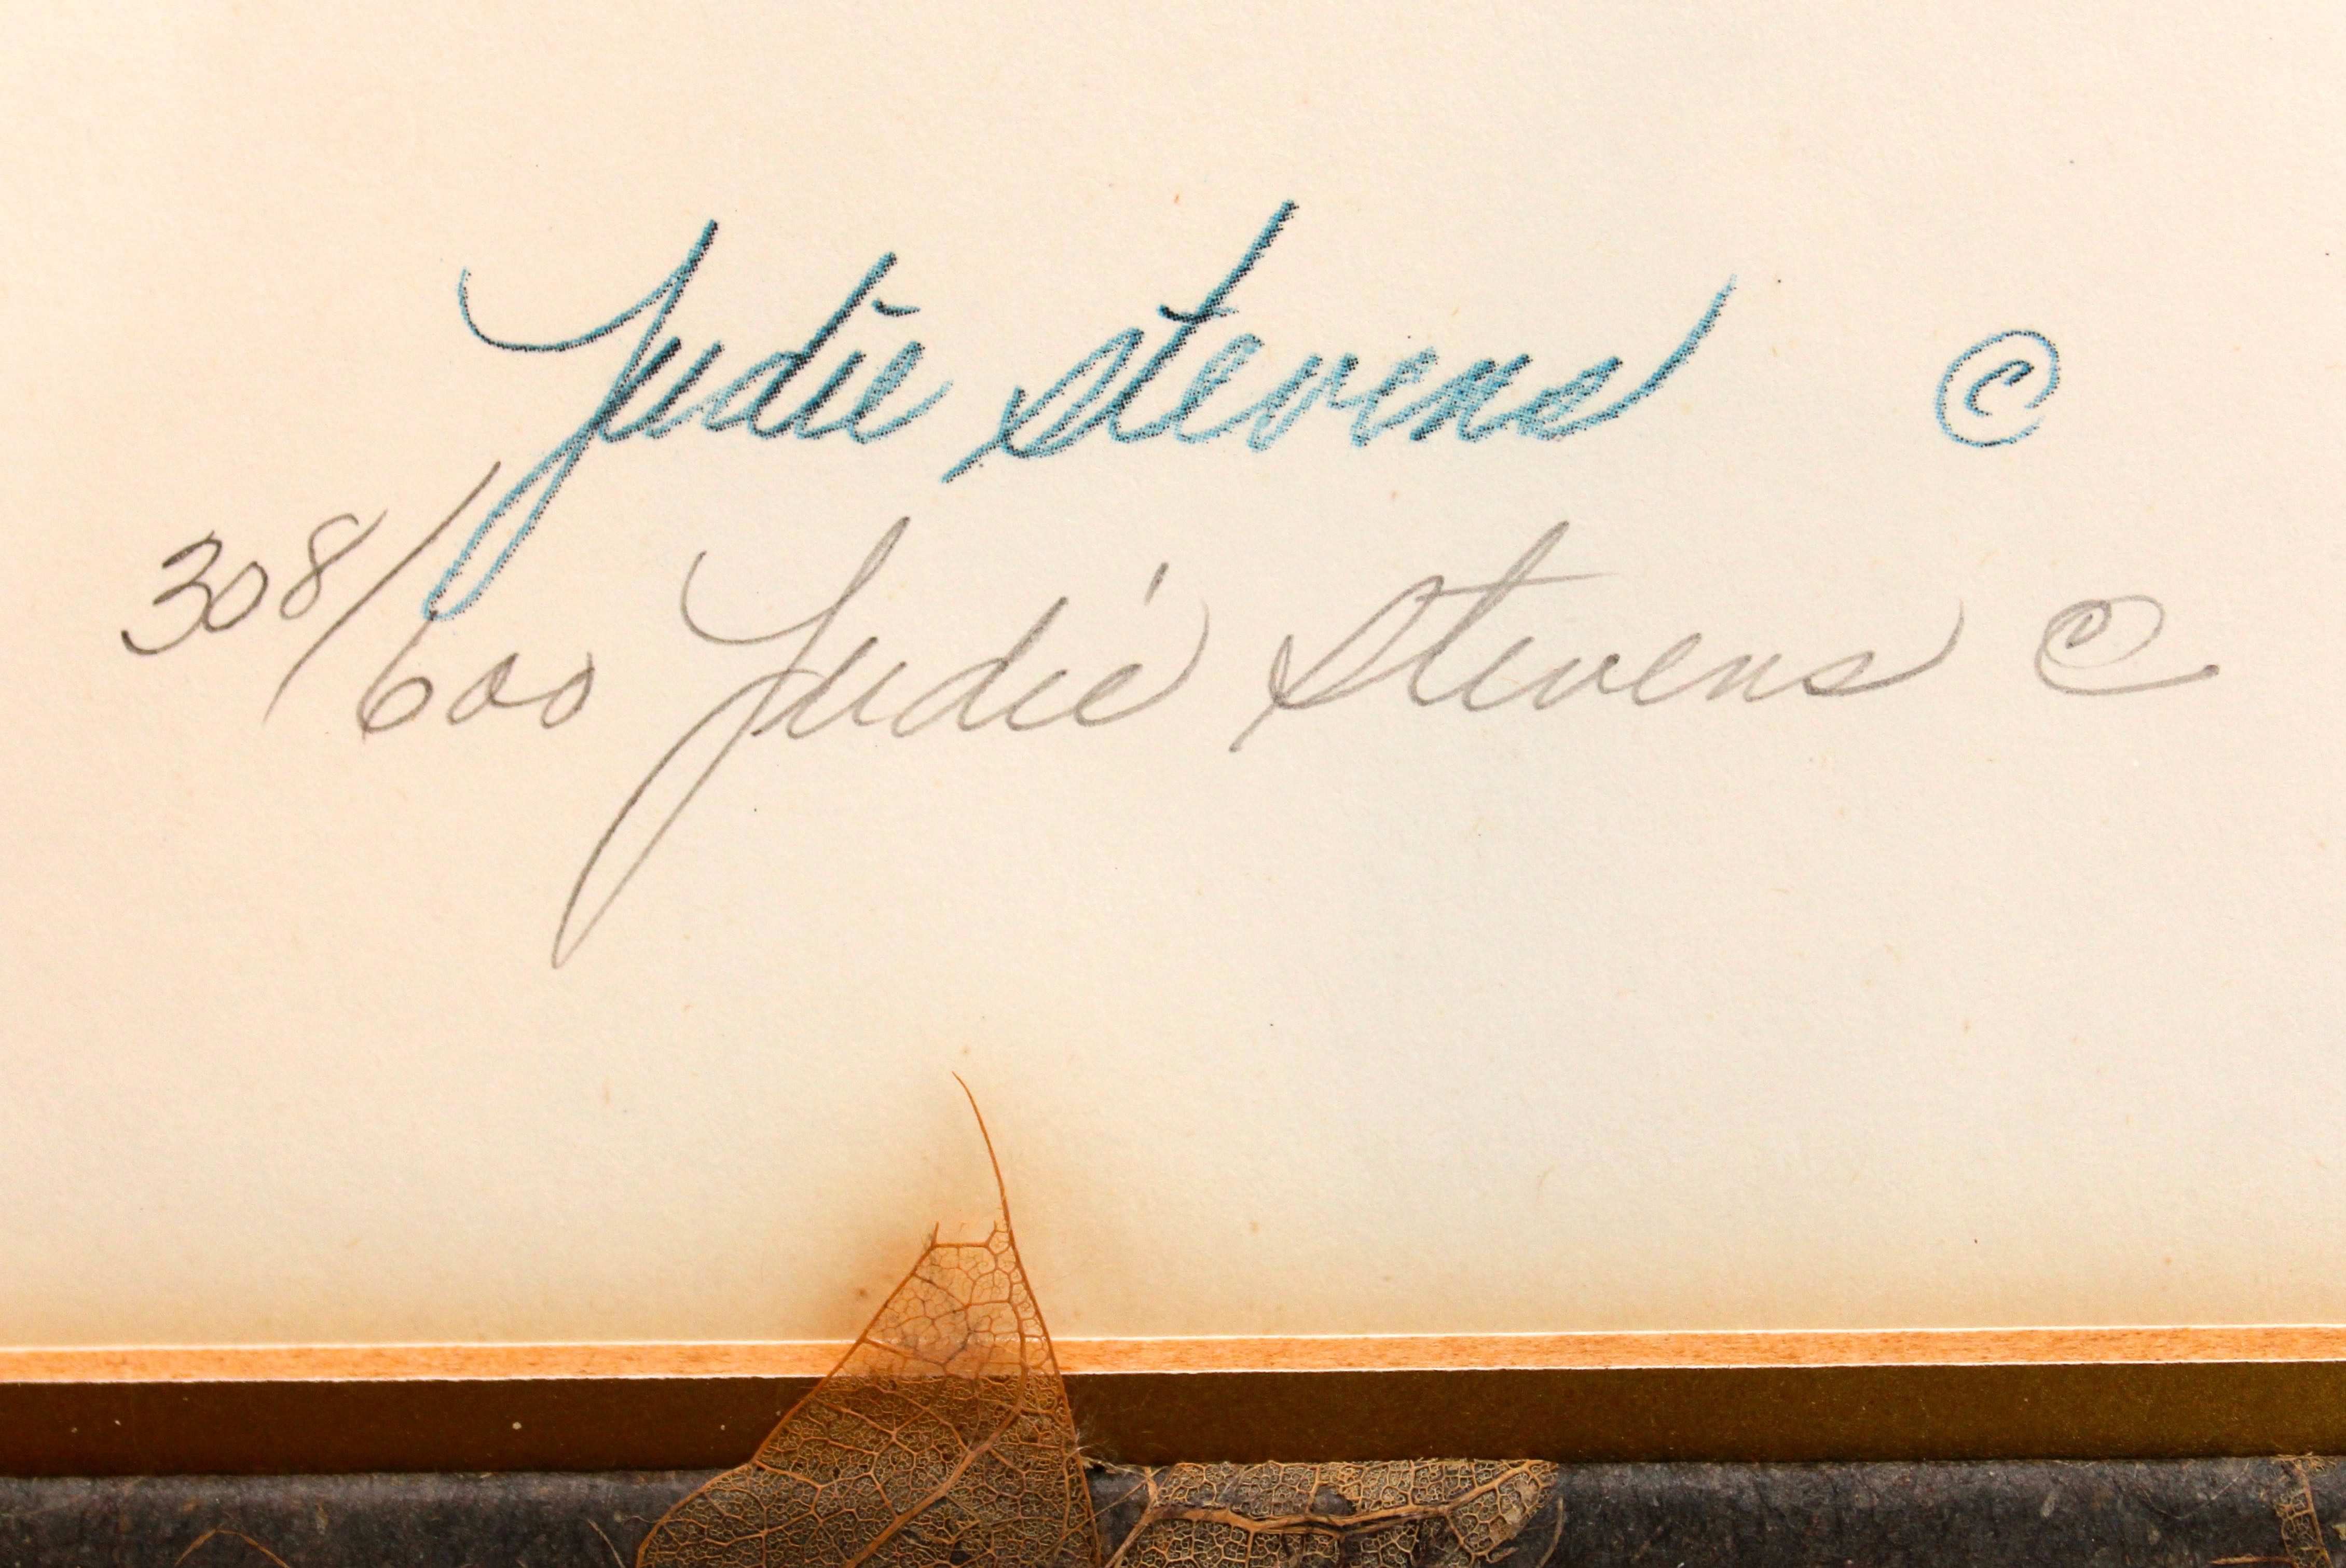 Judie Stevens ©
308/600 Judie Stevens ©